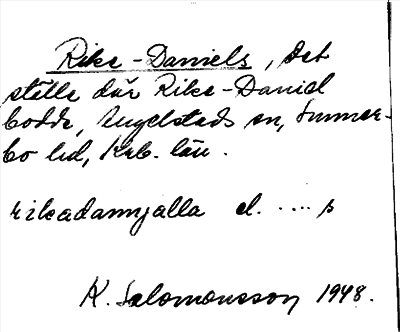 Rike-Daniels, det
ställe där Rike-Daniel
bodde, Augelstads sn, Sunner-
bo hd, Krb. län.
rikadannjälla el. .... p
K. Salomonsson 1948.